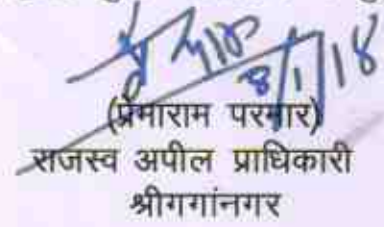 8/1/18
(प्रेमाराम परमार)
राजस्व अपील प्राधिकारी
श्रीगगांनगर